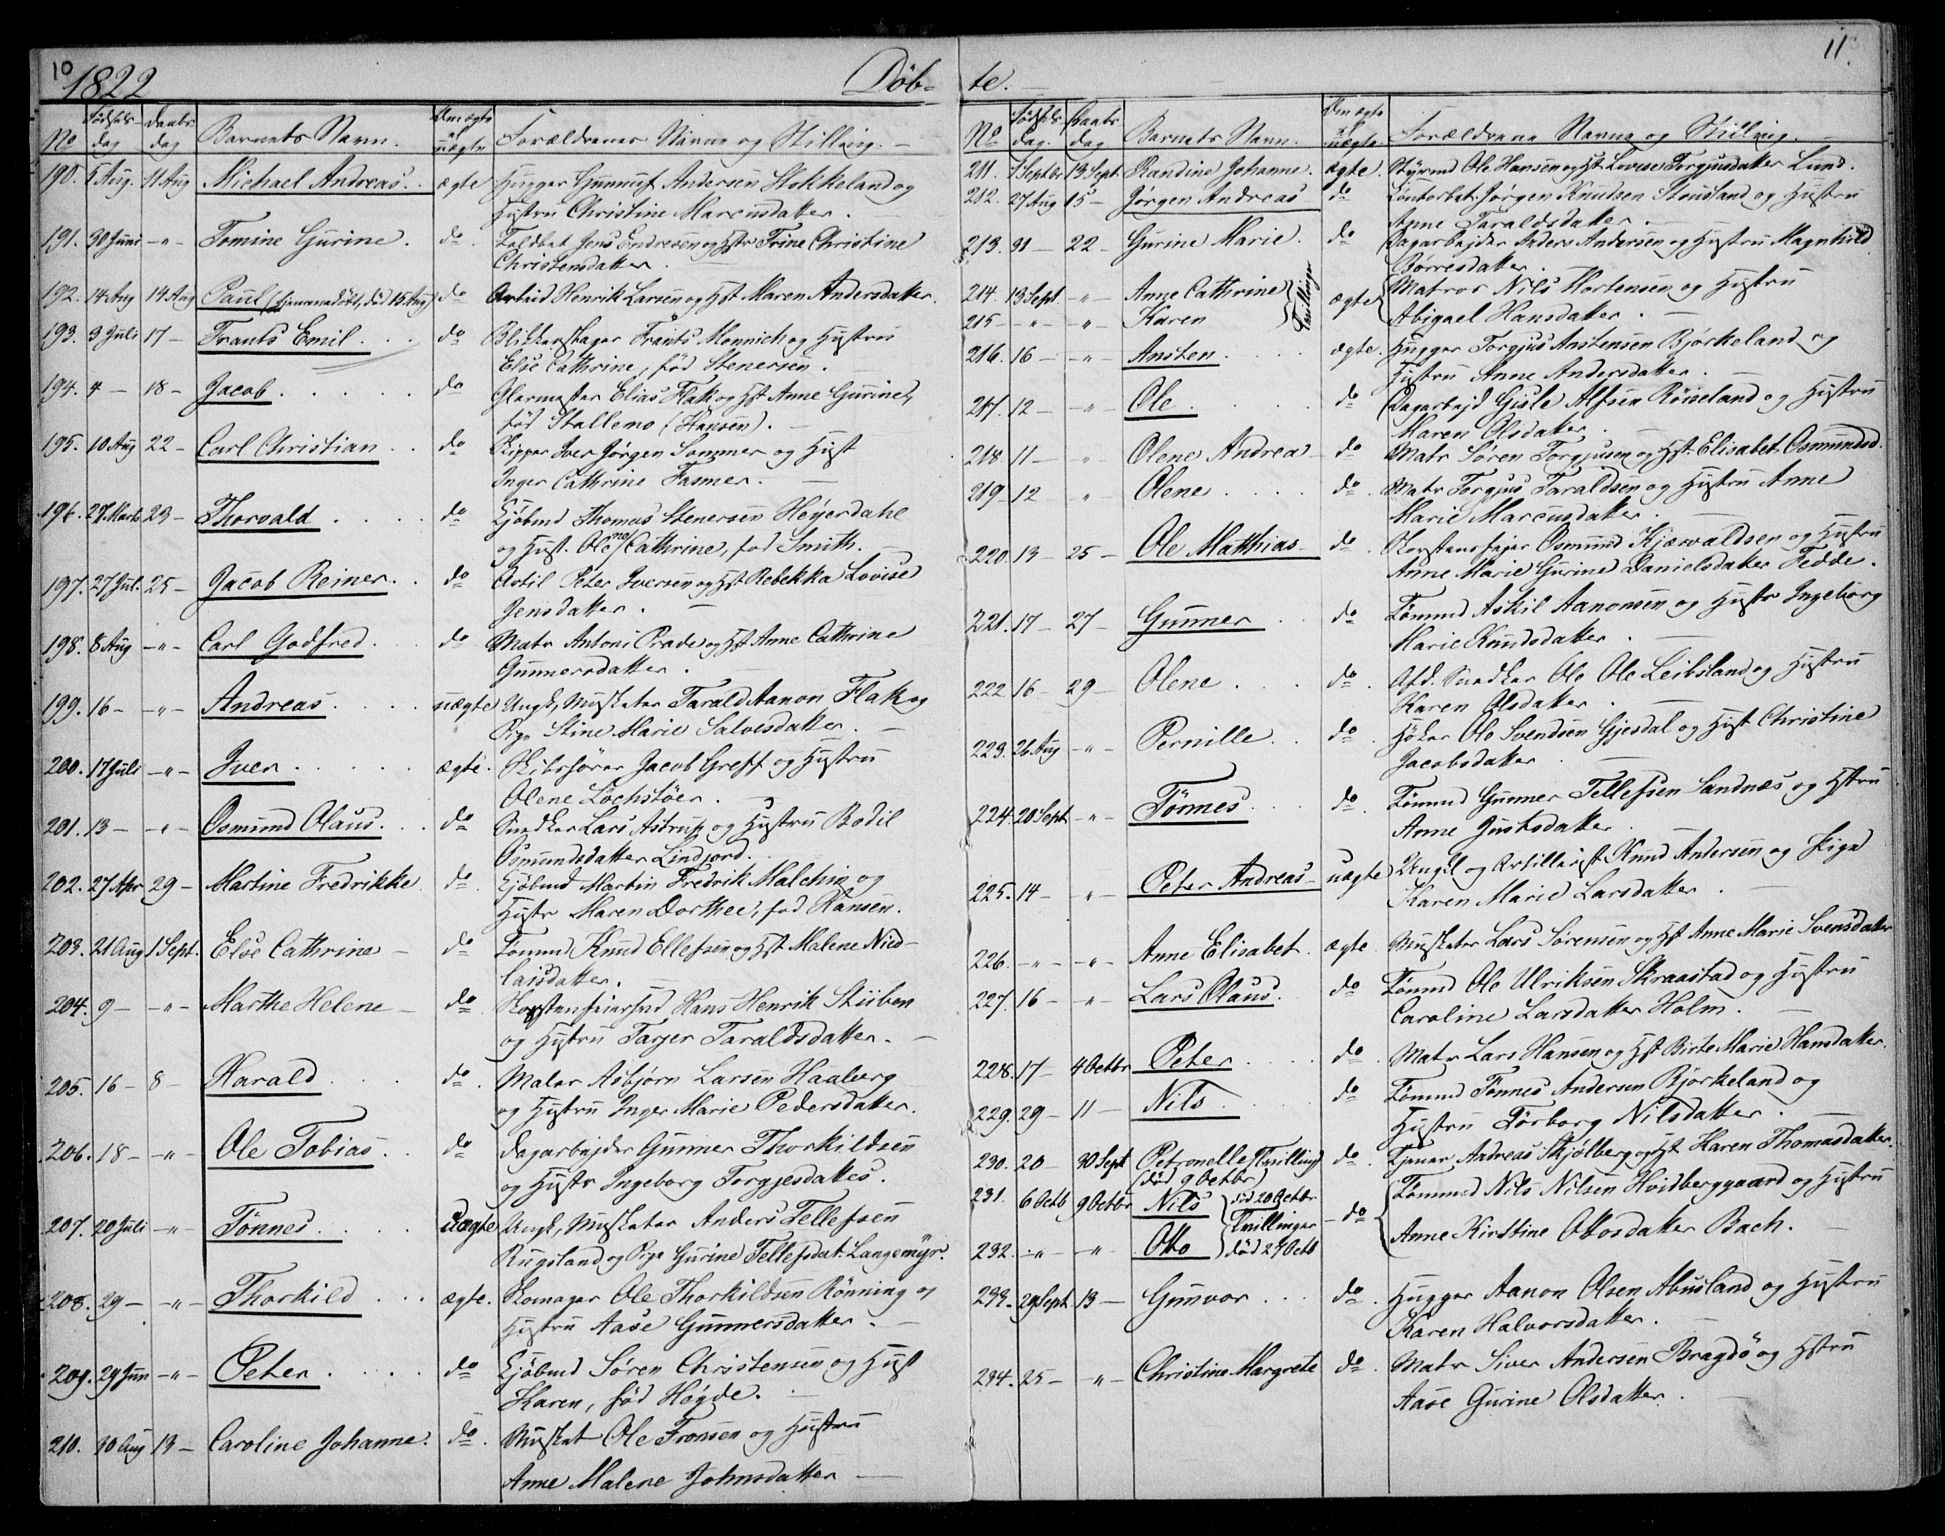 10
1822
Døb-
No
Fødsels-
dag
Daabs-
dag
Barnets Navn.
Om ægte
el.
uægte
Forældrenes Navne og Stilling.
190. 5 Aug. 11 Aug Michael Andreas. ægte Hugger Gunnuf Andersen Stokkeland og
Hustru Christine Marcusdatter.
191. 30 Juni -"- Tomine Gurine. do. Toldbet. Jens Endresen og Hstr Trine Christine
Christensdatter.
192. 14 Aug 14 Aug Paul (hjemmedøbt, død 15 Aug) do Arbeid Henrik Larsen og Hst Maren Andersdatter.
193. 3 Juli 17- Frants Emil. do Blikkenslager Frants Monnich og Hustru
Else Cathrine, fød Stenersen.
194. 4 - 18- Jacob do Glarmester Elias Flak og Hst Anne Gurine,
fød Stallemo (Hansen).
195. 10 Aug 22- Carl Christian do Skipper Iver Jørgen Sommer og Hust
Inger Cathrine Fasmer.
196. 27 Marts 23- Thorvald do Kjøbmd Thomas Stenersen Heyerdahl
og Hust. Olene Cathrine, fød Smith.
197. 27 Jul. 25- Jacob Reiner. do Artil Peter Iversen og Hst Rebekka Lovise
Jensdatter.
198. 8 Aug -"- Carl Godfred. do Matr Antoni Prade og Hst Anne Cathrine
Gunnersdatter.
199. 16- -"- Andreas uægte Ungk, Musketer Tarald Aanon Flak og
Pige Stine Marie Salvesdatter.
200. 17 Juli -"- Iver ægte. Skibsfører Jacob Greff og Hustru
Olene Lochstøer.
201. 13- -"- Osmund Olaus. do Snedker Lars Astrup og Hustru Bodil
Osmundsdatter Lindjord.
202. 27 Apr 29- Martine Fredrikke do. Kjøbmd Martin Fredrik Malthin og
Hustr Maren Dorthee, fød Hansen.
203. 21 Aug 1 Sept. Else Cathrine - do Tømmd Knud Ellefsen og Hst Malene Nico-
laisdatter.
204. 9- -"- Marthe Helene - do Skorstensfeiersvd Hans Henrik Stüben
og Hustru Tarjer Taraldsdatter.
205. 16- 8- Harald do. Maler Asbjørn Larsen Haaberg
og Hustru Inger Marie Pedersdatter.
206. 18- -"- Ole Tobias. do Dagarbejder Gunner Thorkildsen
og Hustr Ingeborg Torgjesdatter.
207. 20 Juli -"- Tønnes uægte Ungk, Musketer Anders Tellefsen
Rugsland og Pige Gurine Tellefsdat. Langemyr.
208. 29- -"- Thorkild ægte. Skomager Ole Thorkildsen Rønning og
Hustru Aase Gunnersdatter.
209. 29 Jun -"- Peter do Kjøbmd Søren Christensen og Hust
Karen, fød Høyde.
210. 30 Aug 13- Caroline Johanne. do. Musket Ole Tronsen og Hustru
Anne Malene Johnsdatter
11.
te.
No
Fødsels-
dag.
Daabs-
dag
Barnets Navn.
Om ægte
el.
uægte.
Forældrene Navne og Stilling.
211. 1 Septbr 13 Sept. Randine Johanne. ægte. Styrmd Ole Hansen og Hst. Lovise Torgjusdatter Lund.
212. 27 Aug 15- Jørgen Andreas do Jørgen Knudsen Stensland og Hustru
Anne Taraldsdatter.
213. 31- 22- Gurine Marie. do Dagarbejder Anders Andersen og Hustru Magnhild
Børresdatter.
214. 13 Sept. -"- Anne Cathrine Tvillinger ægte Matros Nils Mortensen og Hustru
215- -"- -"- Karen Abigael Hansdatter.
216. 16- -"- Ansten. ægte. Hugger Torgjus Anstensen Bjørkeland og
Hustru Anne Andersdatter.
217. 12- -"- Ole do Dagarbejd Gisle Alfsen Røiseland og Hustru
Maren Olsdatter.
218. 11- Olene Andrea- do Matr Søren Torgjusen og Hst. Elisabet Osmundsd.
219. 12 " Olene do. Matr Torgjus Taraldsen og Hustru Anne
Marie Marcusdatter.
220. 13 25- Ole Matthias- do. Skorstensfejer Osmund Kjærvaldsen og Hustru
Anne Marie Gurine Danielsdatter Fedde.
221. 17 27- Gunner do Tømmd Askil Aanonsen og Hustr Ingeborg
Marie Knudsdatter.
222 16- 29- Olene do. Afd. Snedker Ole Ole Leibsland og Hustru
Karen Olsdatter.
223. 26 Aug -"- Pernille. do. Høker Ole Svendsen Gjesdal og Hust Christine
Jacobsdatter
224. 20 Sept. -"- Tønnes. do. Tømmd Gunner Tellefsen Sandnæs og Hstru
Anne Justsdatter
225. 14- " Peter Andreas- uægte Ungkl og Artillerist Knud Andersen og Pige
Karen Marie Larsdatter
226. -"- -"- Anne Elisabet. ægte. Musketer Lars Sørensen og Hst Anne Marie Svensdatter
227. 16- -"- Lars Olaus. do Tømmd Ole Ulriksen Skraastad og Hustru
Caroline Larsdatter Holm.
228. 17- 4 Octbr Peter do. Matr Lars Hansen og Hst Birte Marie Hansdatter.
229. 29- 11- Nils. do Tømmd Tønnes Andersen Bjørkeland og
Hustru Tørborg Nilsdatter.
230. 20- 30 Sept Petronelle (Tvilling do. Tjener Andreas Skjølberg og Hst Karen Thomasdatter.
død 9 Octbr)
231. 6 Octb 9 Octbr Nils død 20 Octbr Tømmd Nils Nilsen Hvidberggaard og Hustru
Tvillinger - do
232. -"- -"- Otto død 27 Octb Anne Kirstine Ottosdatter Bach.
233. 29 Sept 13- Gunvor do. Hugger Aanon Olsen Abusland og Hustru
Karen Halvorsdatter.
234. 25- -"- Christine Margrete do. Matr Siver Andersen Bragdø og Hstru
Aase Gurine Olsdatter.